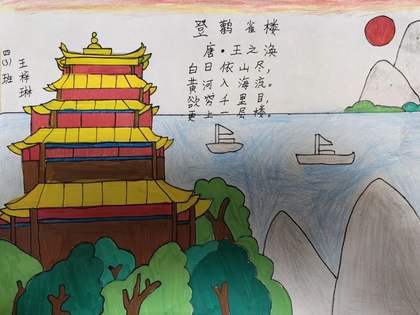 登鹳雀楼
唐·王之涣
白日依山尽，
黄河入海流。
欲穷千里目，
更上一层楼。
四(1)班
王梓琳